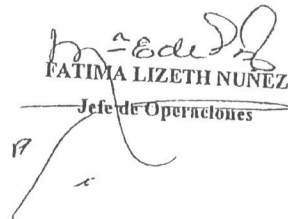 FATIMA LIZETH NUÑEZ
Jefe de Operaciones